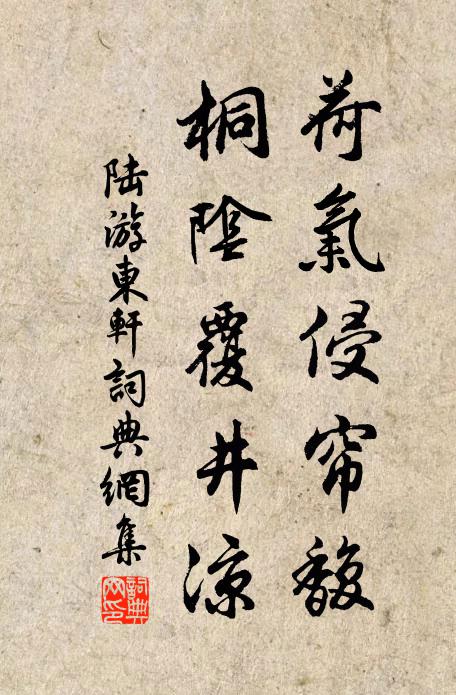 荷氣侵帘馥
桐陰覆井涼
陸游東軒詞典網集
詞典網印